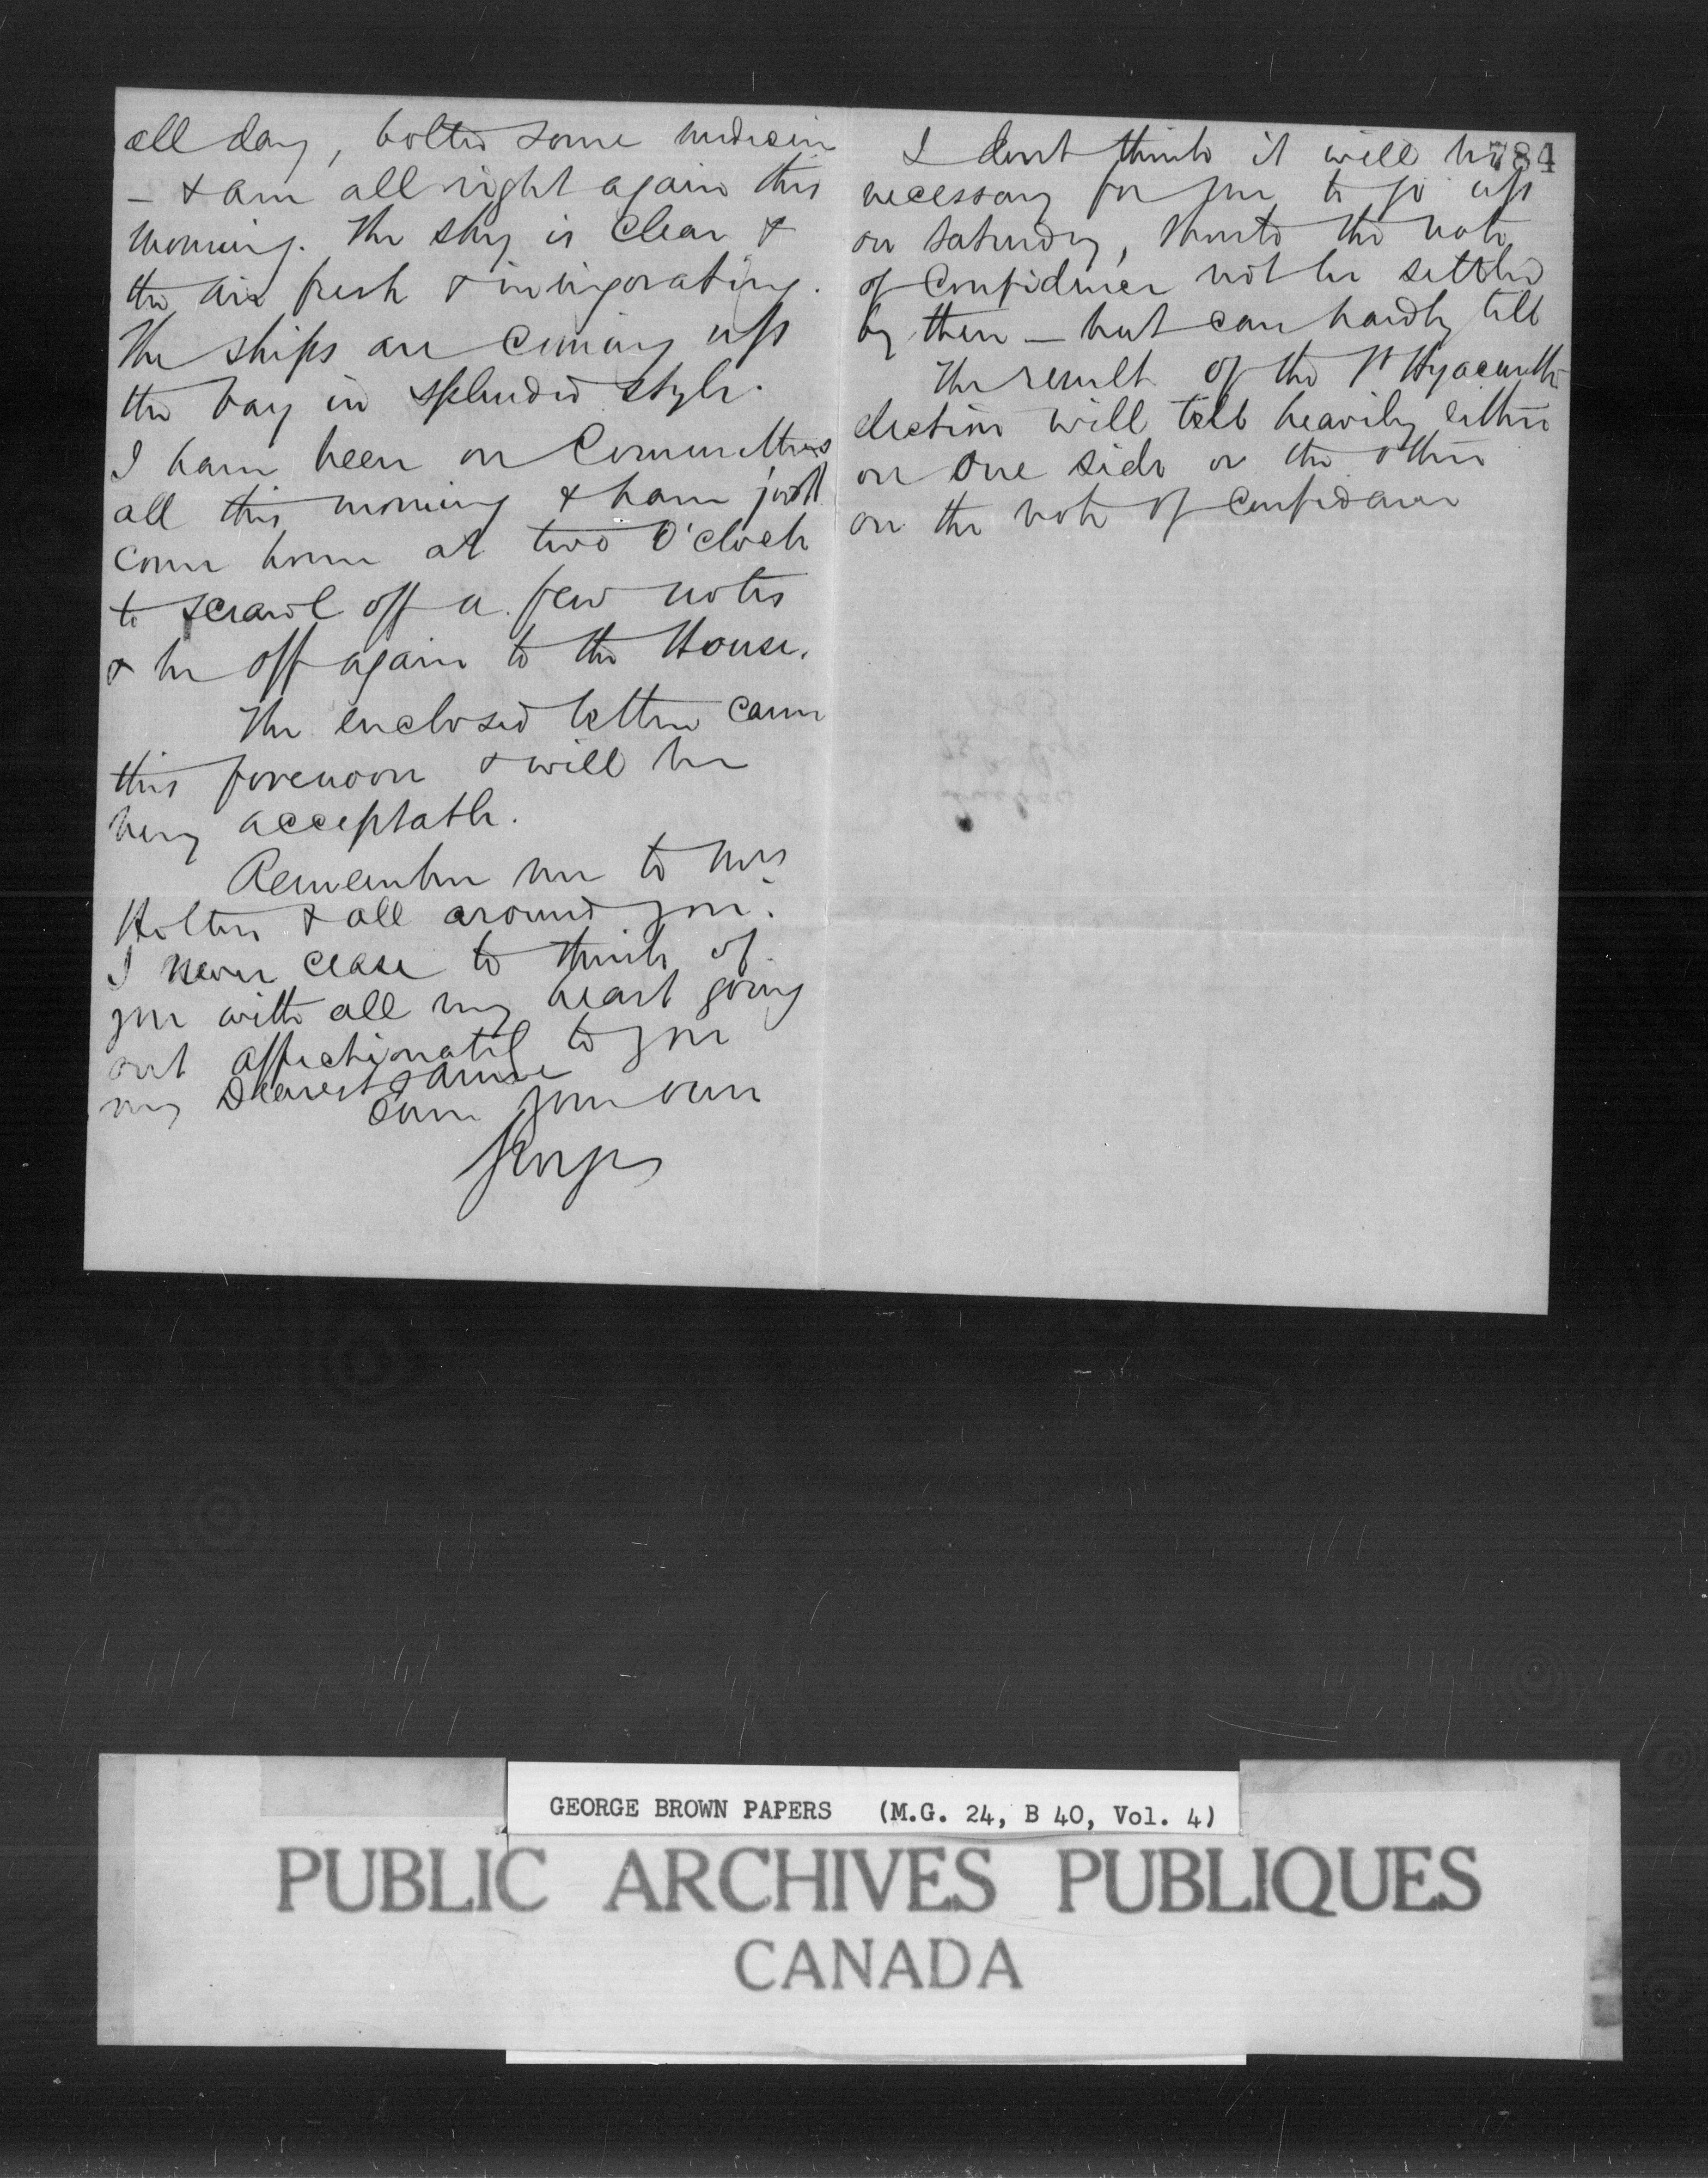 all day, bolted some medicin
— & am all right again this
morning. The sky is clear &
the air fresh & invigorating.
The ships are coming up
the bay in splendid style.
I have been on Committees
all this morning & have just
come home at two O'clock
to scrawl off a few notes
& be off again to the House.
The enclosed letter came
this forenoon & will be
very acceptable.
Remember me to Mrs
Holton & all around you.
I never cease to think of
you with all my heart going
out affectionately to you
my Dearest Annie
Ever your own
George
784
I dont think it will be
necessary for you to go up
on Saturday, should the vote
of Confidence not be settled
by then — but can hardly tell
The result of the St Hyacinthe
election will tell heavily either
on one side or the other
on the vote of Confidence
GEORGE BROWN PAPERS (M.G. 24, B 40, Vol. 4)
PUBLIC ARCHIVES PUBLIQUES
CANADA